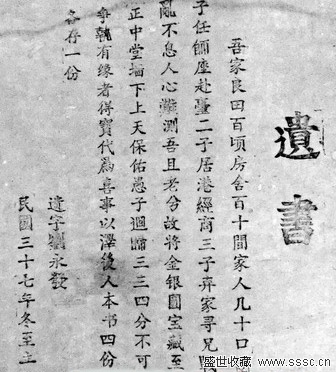 遺書
吾家良田百頃房舍百十間家人几十口
子任師座赴臺二子居港經商三子弃家尋兄
亂不息人心難測吾且老兮故將金銀圓宝藏至
正中堂墙下上天保佑愚子迴歸三三四分不可
爭執有缘者得寳代為喜事以澤後人本书四份
各存一份
遺字劉永發
民國三十七年冬至立
盛世收藏 www.sssc.cn